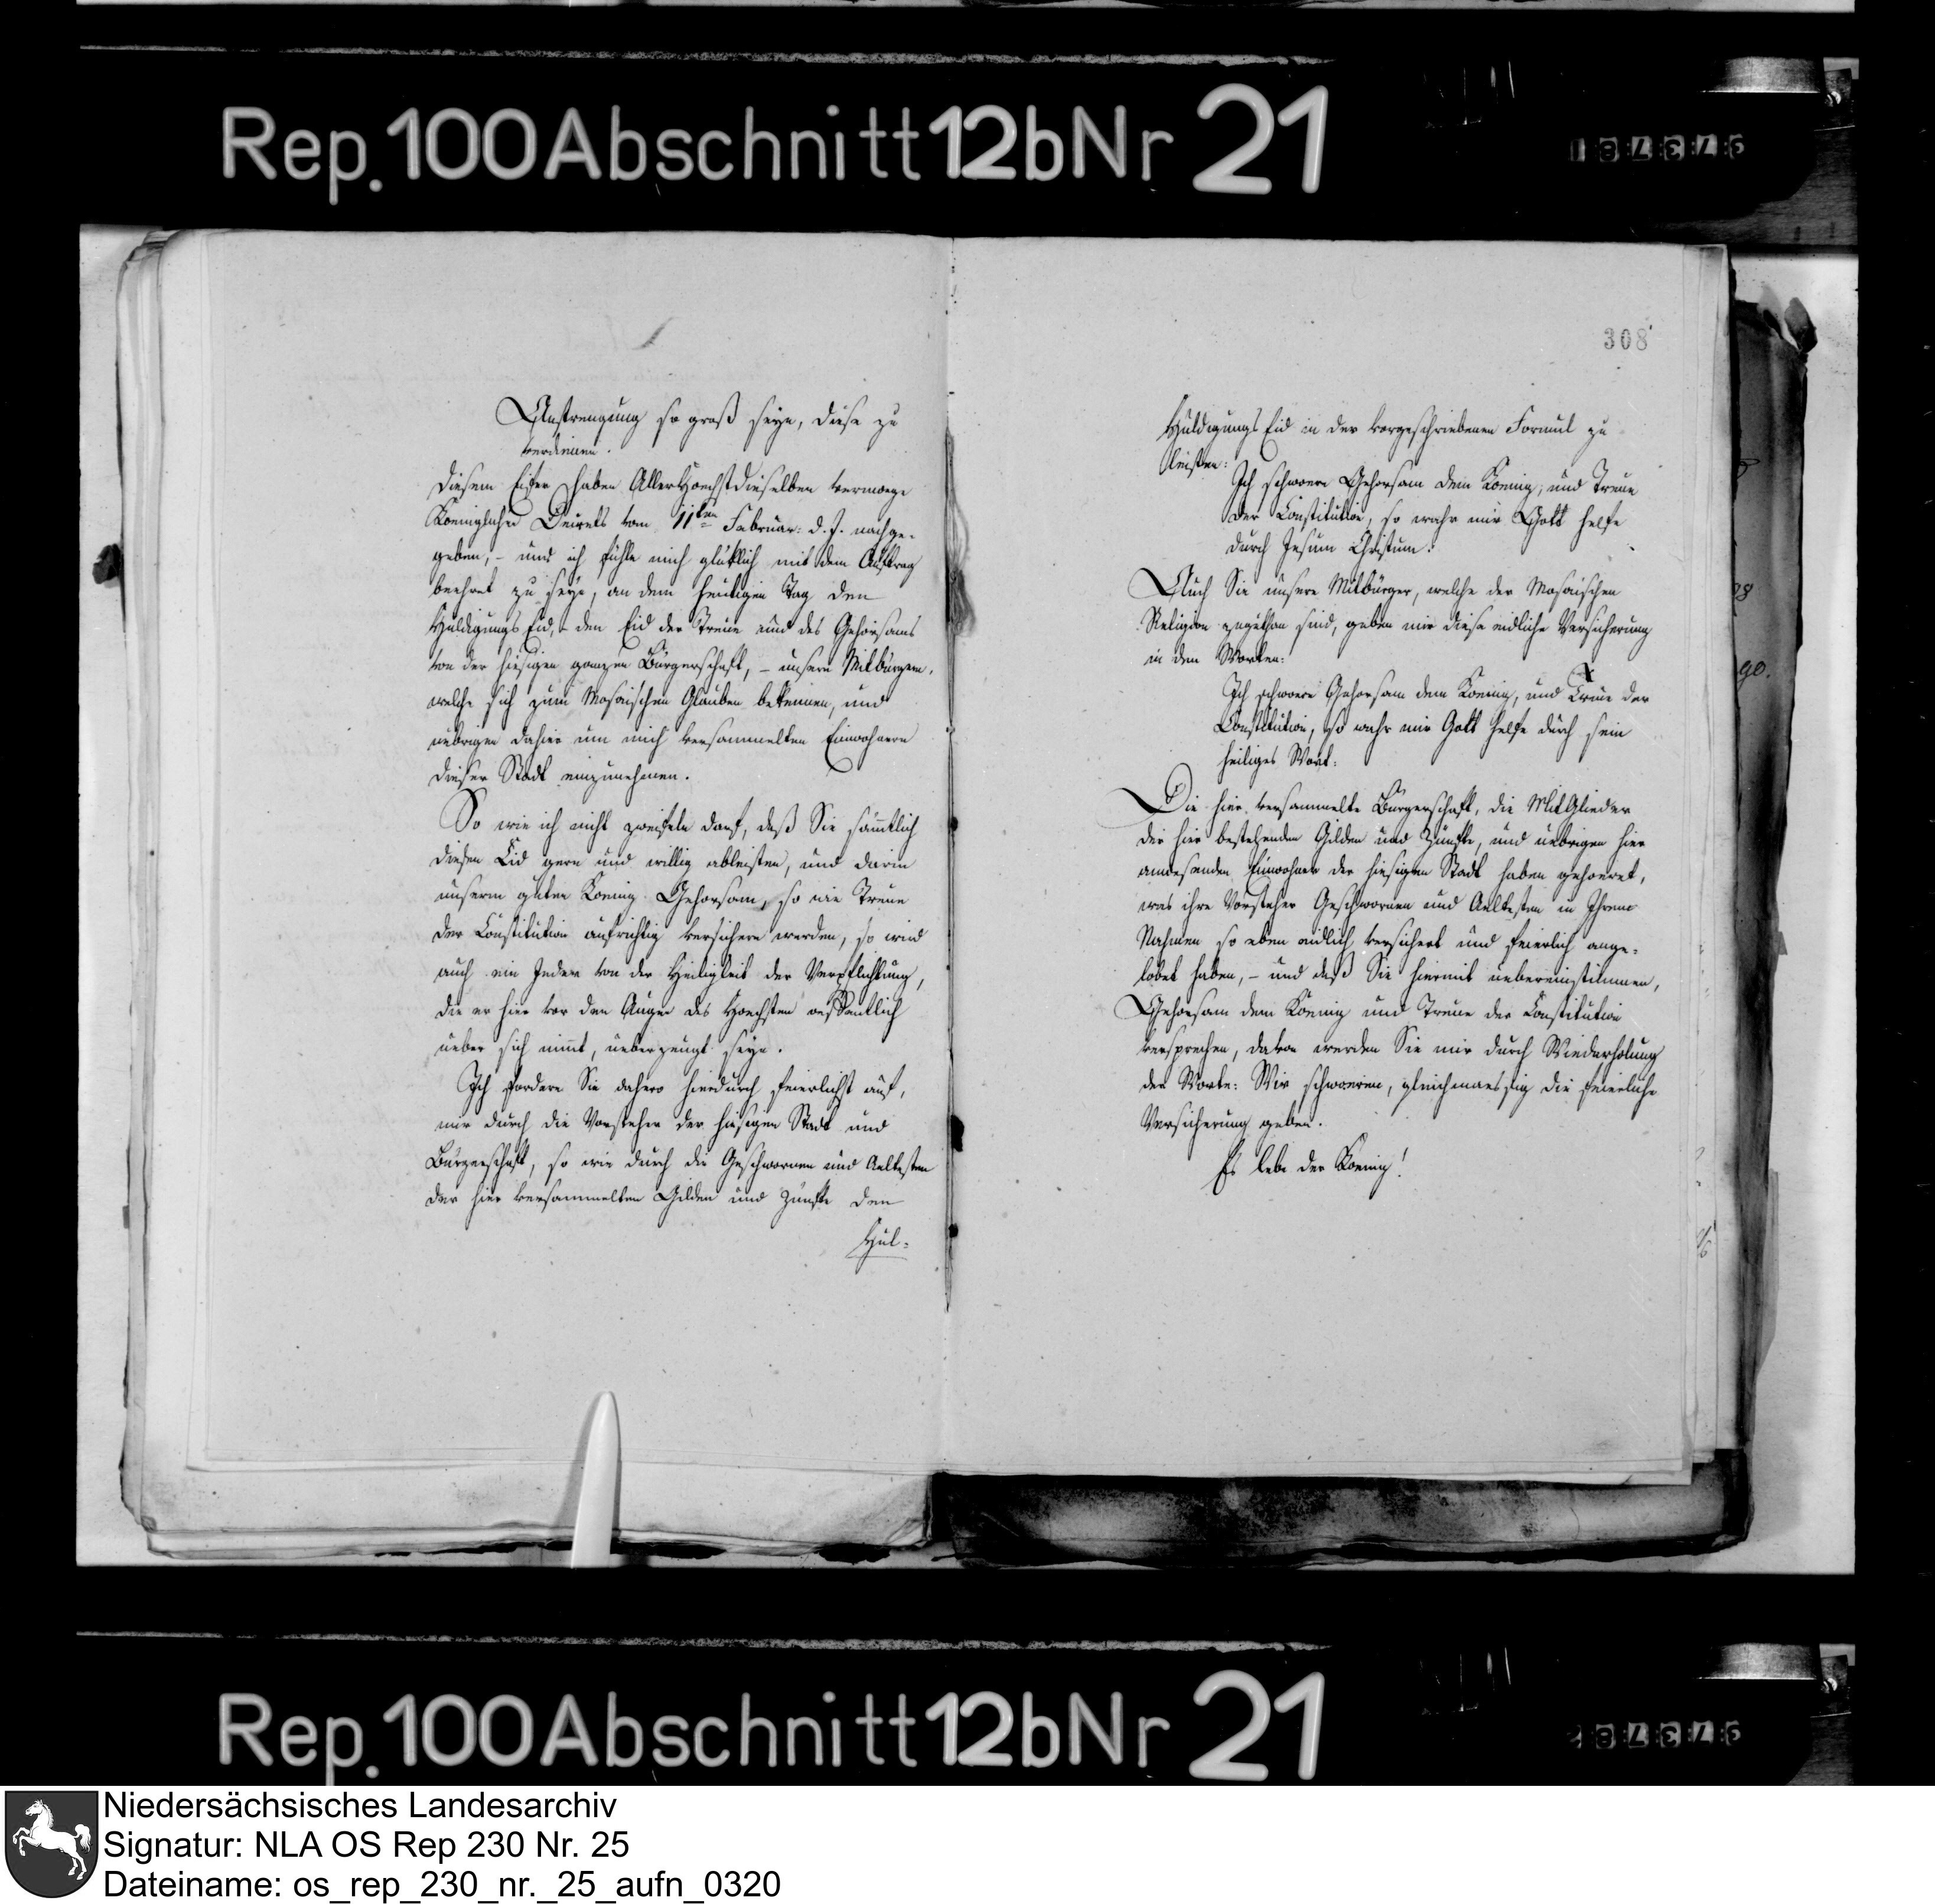 Rep.100Abschnitt12bNr 21
308
Anstrengung so groß seyn, diese zu
verdienen.
Diesem Eifer haben AllerHoechstdieselben vermoege
Koeniglichen Decrets vom 11ten Februar: d. J. nachge-
geben, - und ich fühle mich glüklich mit dem Auftrag
beehret zu seyn, an dem heutigen Tag den
Huldigungs Eid, - den Eid der Treue und des Gehorsams
von der hiesigen ganzen Bürgerschaft, - unsern Mitbürgern,
welche sich zum Mosaischen Glauben bekennen, und
uebrigen dahier um mich versammelten Einwohnern
dieser Stadt einzunehmen.
So wie ich nicht zweifeln darf, daß Sie sämtlich
diesen Eid gern und willig ableisten, und darin
unserm guten Koenig Gehorsam, so wie Treue
der Constitution aufrichtig versichern werden, so wird
auch ein Jeder von der Heiligkeit der Verpflichtung,
die er hier vor den Augen des Hoechsten oeffentlich
ueber sich nimt, ueberzeugt seyn.
Ich fordere Sie dahero hierdurch feierlichst auf,
mir durch die Vorsteher der hiesigen Stadt und
Bürgerschaft, so wie durch die Geschwornen und Aeltesten
der hier versammelten Gilden und Zünfte den
Hul-
Huldigungs Eid in der vorgeschriebenen Formul zu
leisten:
Ich schwoere Gehorsam dem Koenig, und Treue
der Constitution, so wahr mir Gott helfe
durch Jesum Christum.
Auch Sie unsere Mitbürger, welche der Mosaischen
Religion zugethan sind, geben mir diese eidliche Versicherung
in den Worten:
Ich schwoere Gehorsam dem Koenig, und Treue der
Constitution, so wahr mir Gott helfe durch sein
heiliges Wort.
Die hier versammelte Bürgerschaft, die MitGlieder
der hier bestehenden Gilden und Zünfte, und uebrigen hier
anwesenden Einwohner der hiesigen Stadt haben gehoeret,
was ihre Vorsteher Geschwornen und Aeltesten in Ihrem
Nahmen so eben eidlich versichert und feierlich ange-
lobet haben, - und daß Sie hiermit uebereinstimmen,
Gehorsam dem Koenig und Treue der Constitution
versprechen, davon werden Sie mir durch Wiederholung
der Worte: Wir schwoeren, gleichmaessig die feierliche
Versicherung geben.
Es lebe der Koenig!
Rep.100Abschnitt12bNr 21
Niedersächsisches Landesarchiv
Signatur: NLA OS Rep 230 Nr. 25
Dateiname: os_rep_230_nr._25_aufn_0320